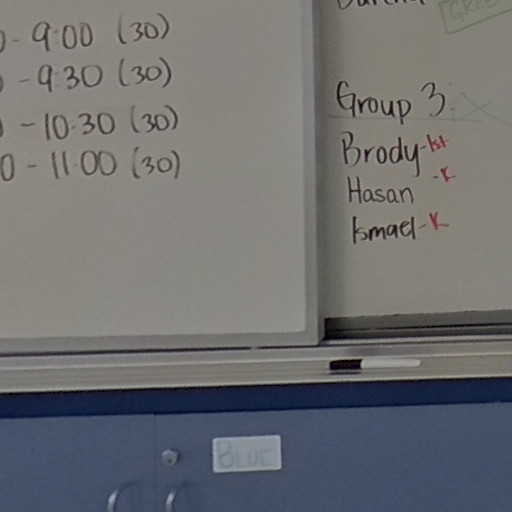 - 9:00 (30)
- 9:30 (30)
- 10:30 (30)
0 - 11:00 (30)
GREE
Group 3:
Brody - 1st
Hasan - K
Ismael - K
BLUE